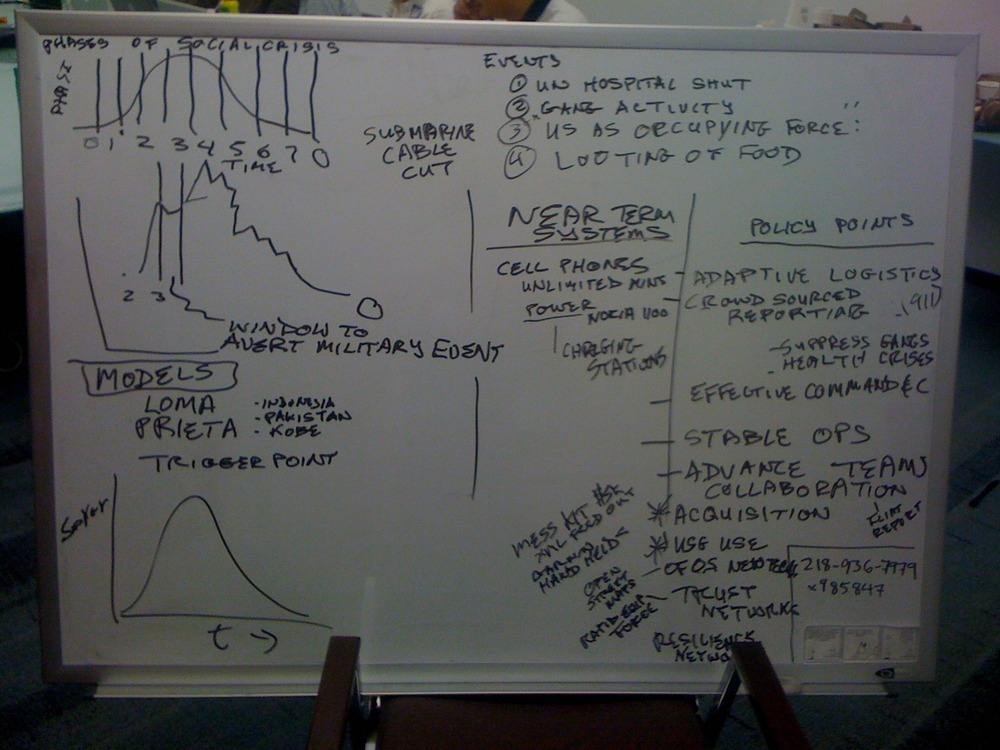 PHASES OF SOCIAL CRISIS
0 1 2 3 4 5 6 7 0
TIME
SUBMARINE
CABLE
CUT
EVENTS
① UN HOSPITAL SHUT
② GANG ACTIVITY
③ US AS OCCUPYING FORCE
④ LOOTING OF FOOD
2 3
0
WINDOW TO
AVERT MILITARY EVENT
MODELS
LOMA
PRIETA
- INDONESIA
- PAKISTAN
- KOBE
TRIGGER POINT
t →
NEAR TERM
SYSTEMS
CELL PHONES
UNLIMITED MINS
POWER
NOKIA 1100
CHARGING
STATIONS
POLICY POINTS
- ADAPTIVE LOGISTICS
- CROWD SOURCED
REPORTING
(911)
- SUPPRESS GANGS
- HEALTH CRISES
- EFFECTIVE COMMAND & C
- STABLE OPS
- ADVANCE TEAMS
COLLABORATION
* ACQUISITION
REPORT
* USE USE
TRUST
NETWORKS
RESILIENCE
MESS KIT
XML FEED OUT
HAND HELD
OPEN
STREET
MAPS
FORCE
218-936-7979
x985847